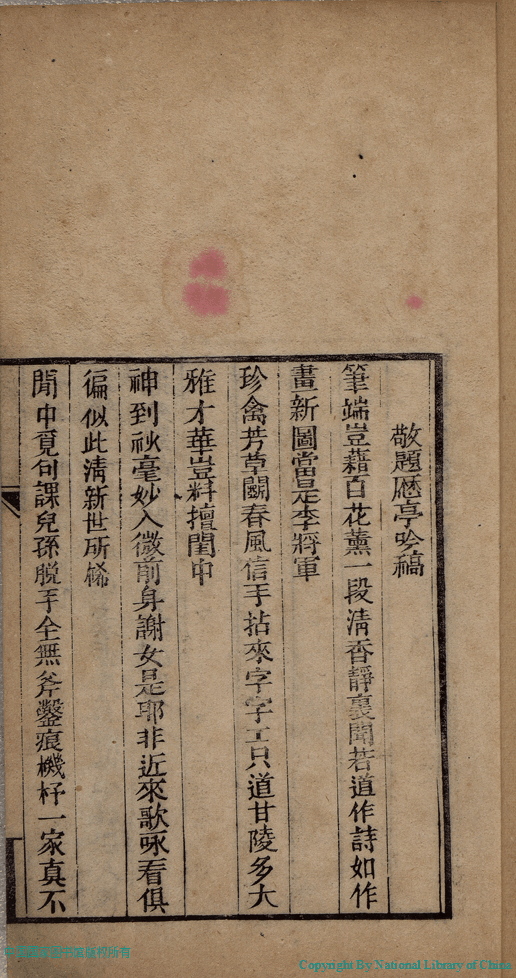 敬題懕亭吟稿
筆端豈藉百花薰一段清香靜裏聞若道作詩如作
畫新圖當是李將軍
珍禽芳草鬬春風信手拈來字字工只道甘陵多大
雅才華豈料擅閨中
神到秋毫妙入微前身謝女是耶非近來歌咏看俱
徧似此清新世所稀
閒中覓句課兒孫脫手全無斧鑿痕機杼一家真不
Copyright By National Library of China